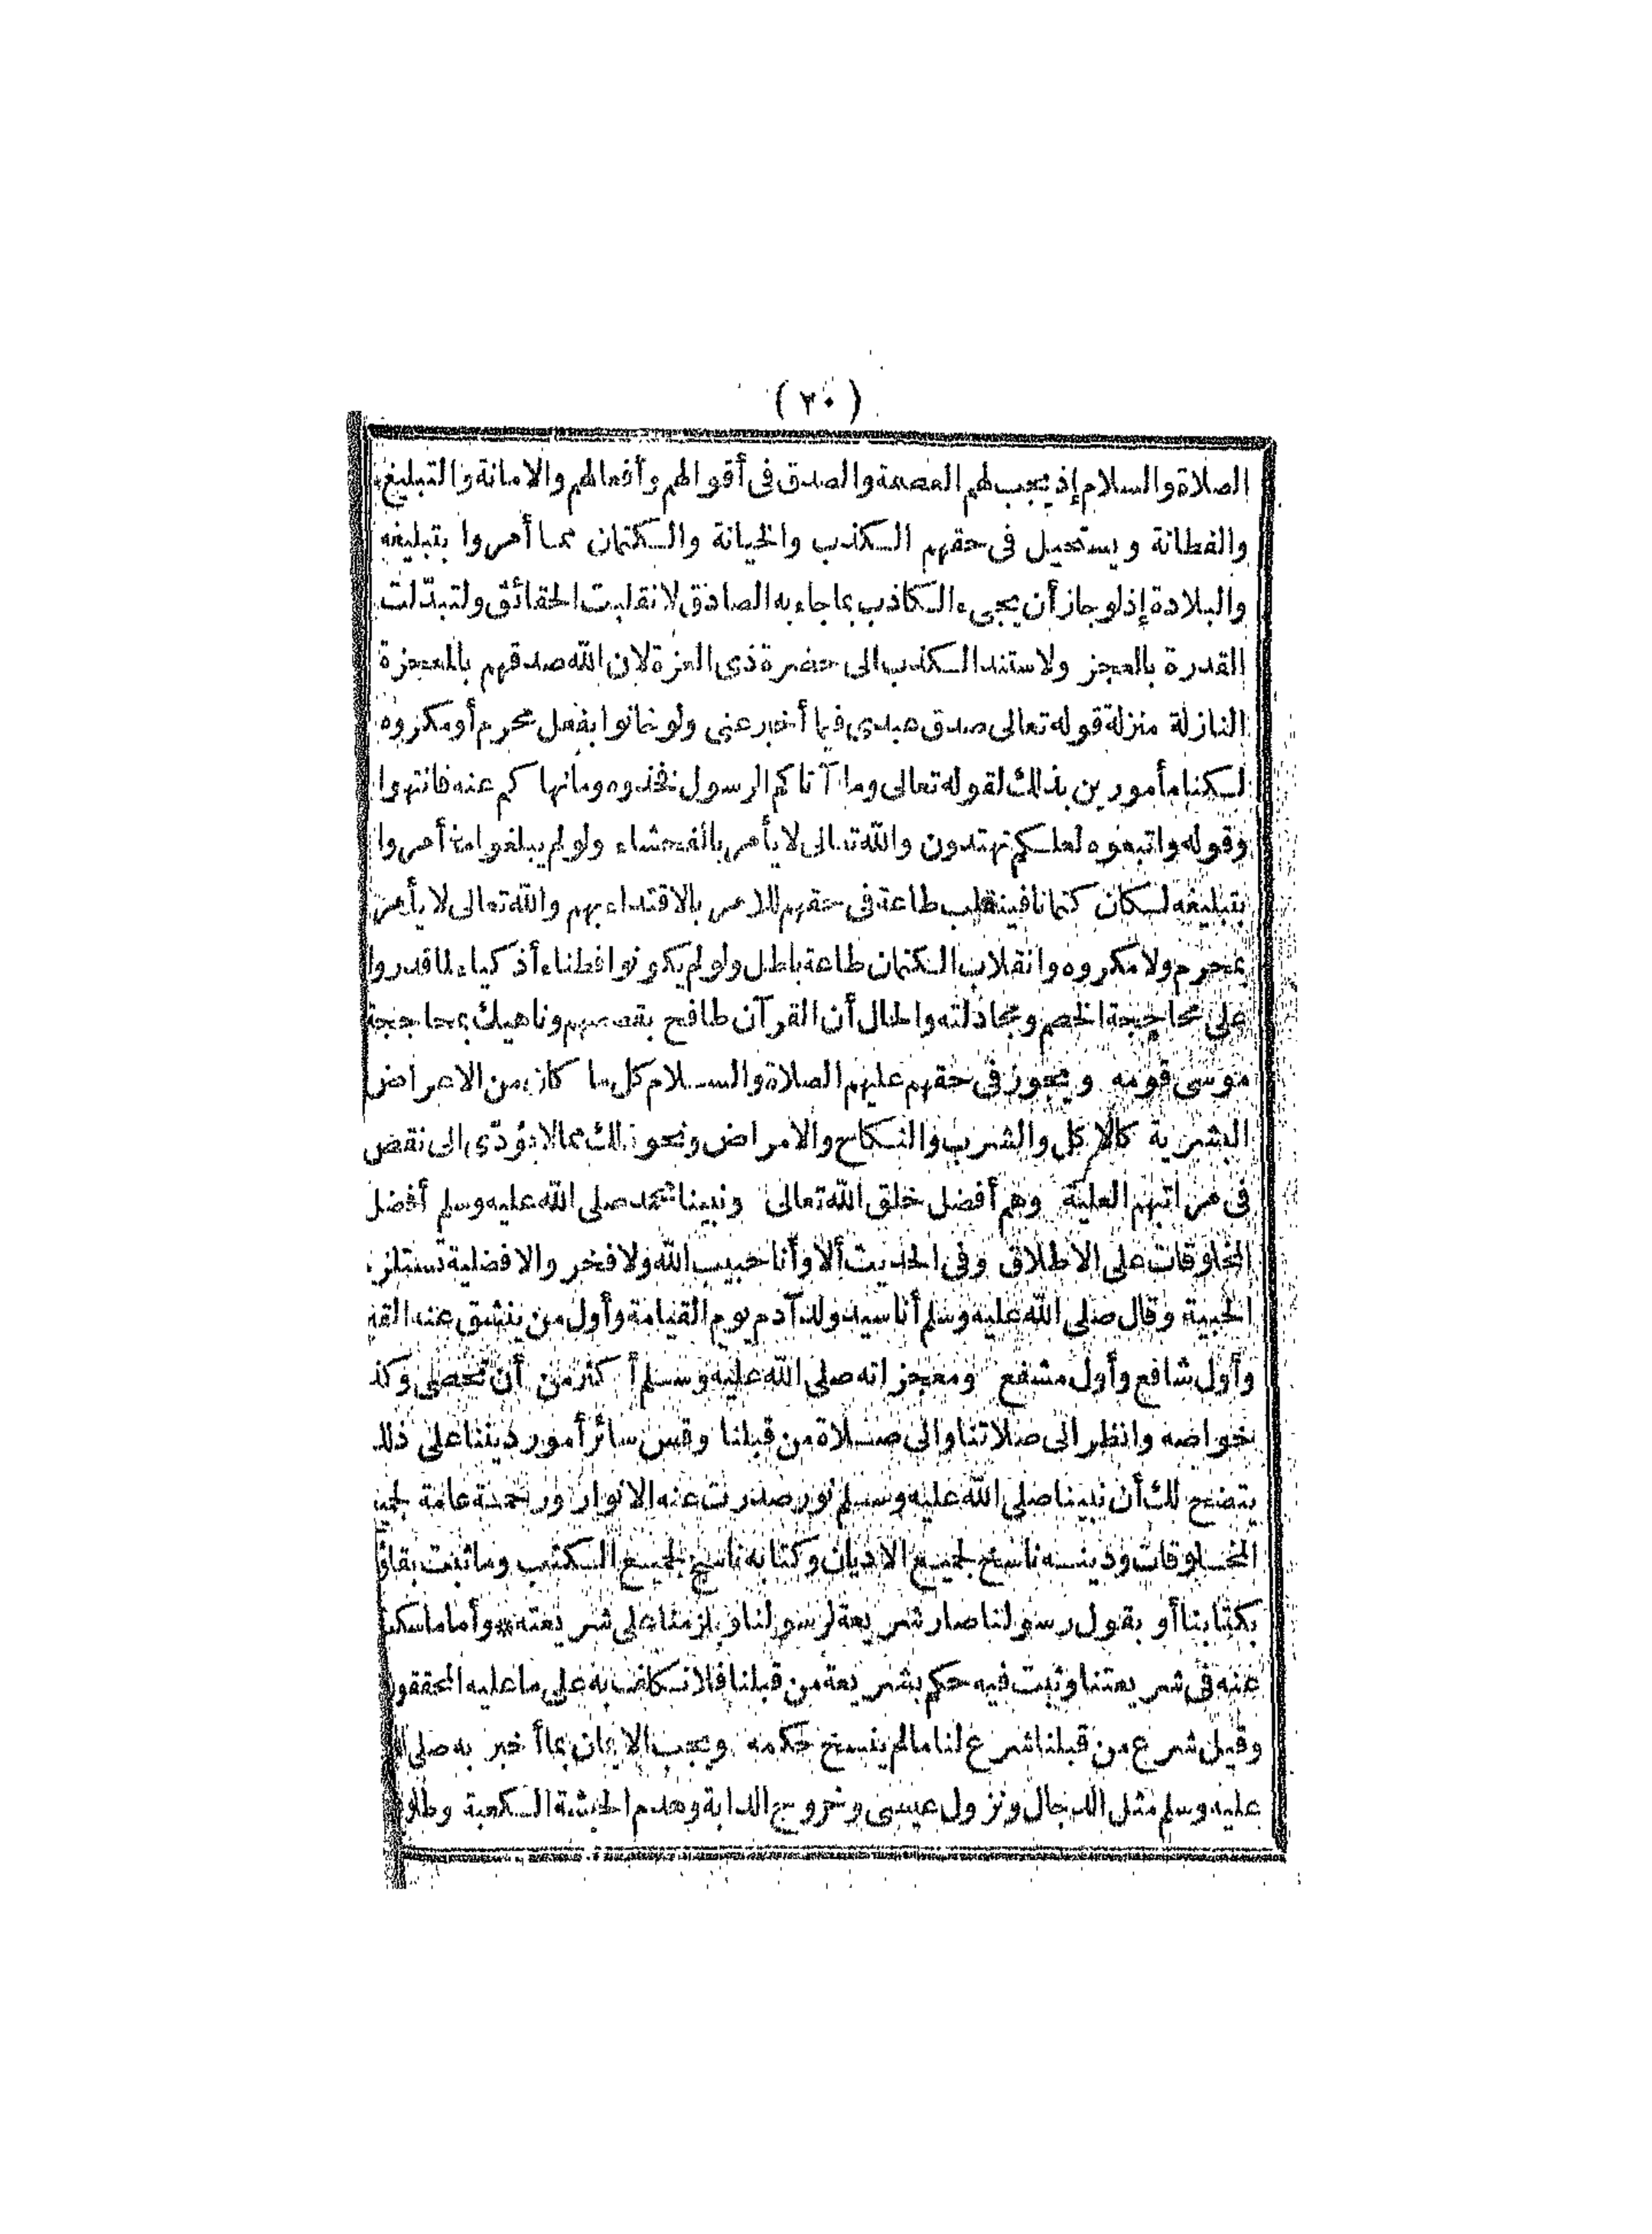 (٢٠)
الصلاة والسلام إذ يجب لهم العصمة والصدق فى أقوالهم وأفعالهم والامانة والتبليغ
والفطانة ويستحيل فى حقهم الكذب والخيانة والكتمان مما أمروا بتبليغه
والبلادة إذ لو جاز أن يجىء الكاذب بما جاء به الصادق لانقلبت الحقائق ولتبدّلت
القدرة بالعجز ولاستند الكذب الى حضرة ذى العزة لان الله صدقهم بالمعجزة
النازلة منزلة قوله تعالى صدق عبدى فيما أخبر عنى ولو خانوا بفعل محرم أو مكروه
لكنا مأمورين بذلك لقوله تعالى وما آتاكم الرسول فخذوه وما نهاكم عنه فانتهوا
وقوله واتبعوه لعلكم تهتدون والله تعالى لا يأمر بالفحشاء ولو لم يبلغوا ما أمروا
بتبليغه لكان كتمانا فينقلب طاعة فى حقهم للامر بالاقتداء بهم والله تعالى لا يأمر
بمحرم ولا مكروه وانقلاب الكتمان طاعة باطل ولو لم يكونوا فطناء أذكياء لما قدروا
على محاججة الخصم ومجادلته والحال أن القرآن طافح بقصصهم وناهيك بمحاججة
موسى قومه ويجوز فى حقهم عليهم الصلاة والسلام كل ما كان من الاعراض
البشرية كالاكل والشرب والنكاح والامراض ونحو ذلك مما لا يؤدّى الى نقص
فى مراتبهم العلية وهم أفضل خلق الله تعالى ونبينا محمد صلى الله عليه وسلم أفضل
المخلوقات على الاطلاق وفى الحديث ألا وأنا حبيب الله ولا فخر والافضلية تستلزم
الحبية وقال صلى الله عليه وسلم أنا سيد ولد آدم يوم القيامة وأول من ينشق عنه القبر
وأول شافع وأول مشفع ومعجزاته صلى الله عليه وسلم أكثر من أن تحصى وكذ
خواصه وانظر الى صلاتنا والى صلاة من قبلنا وقس سائر أمور ديننا على ذلك
يتضح لك أن نبينا صلى الله عليه وسلم نور صدرت عنه الانوار ورحمة عامة لجميـ
المخلوقات ودينه ناسخ لجميع الاديان وكتابه ناسخ لجميع الكتب وما ثبت بقاؤ
بكتابنا أو بقول رسولنا صار شريعة لرسولنا ويلزمنا على شريعته * وأما ما سكت
عنه فى شريعتنا وثبت فيه حكم بشريعة من قبلنا فلا نكلف به على ما عليه المحققون
وقيل شرع من قبلنا شرع لنا ما لم ينسخ حكمه ويجب الايمان بما أخبر به صلى ا
عليه وسلم مثل الدجال ونزول عيسى وخروج الدابة وهدم الحبشة الكعبة وطلو